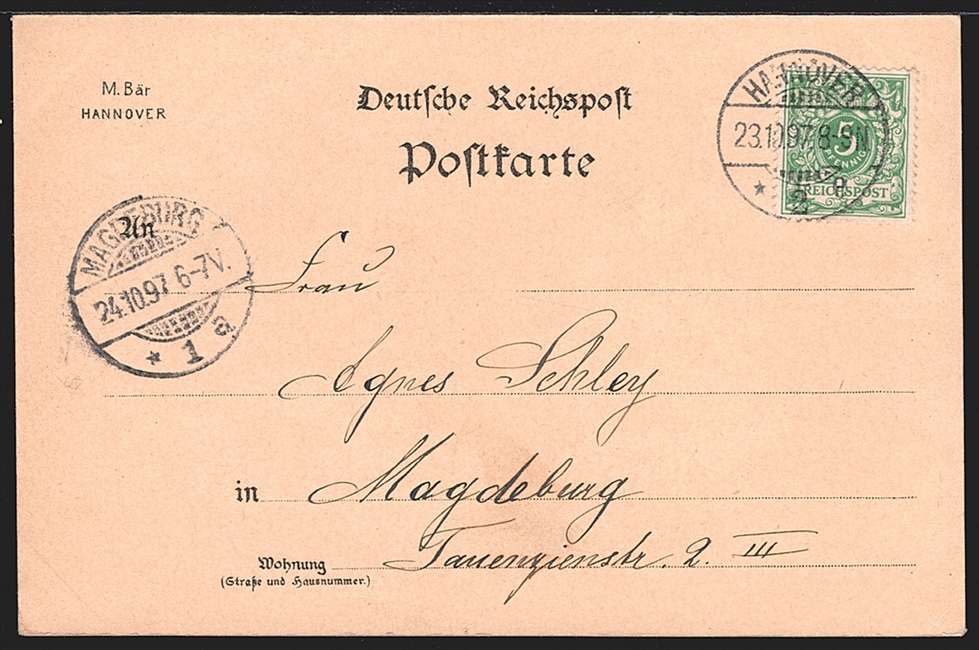 M. Bär
HANNOVER
Deutsche Reichspost
Postkarte
HANNOVER
23.10.97. 8-9N
* 1 a
2
5
PFENNIG
REICHSPOST
MAGDEBURG
24.10.97 6-7V.
* 1 a
An
Frau
Agnes Schley
in Magdeburg
Wohnung Tauenzienstr. 2. III
(Straße und Hausnummer.)